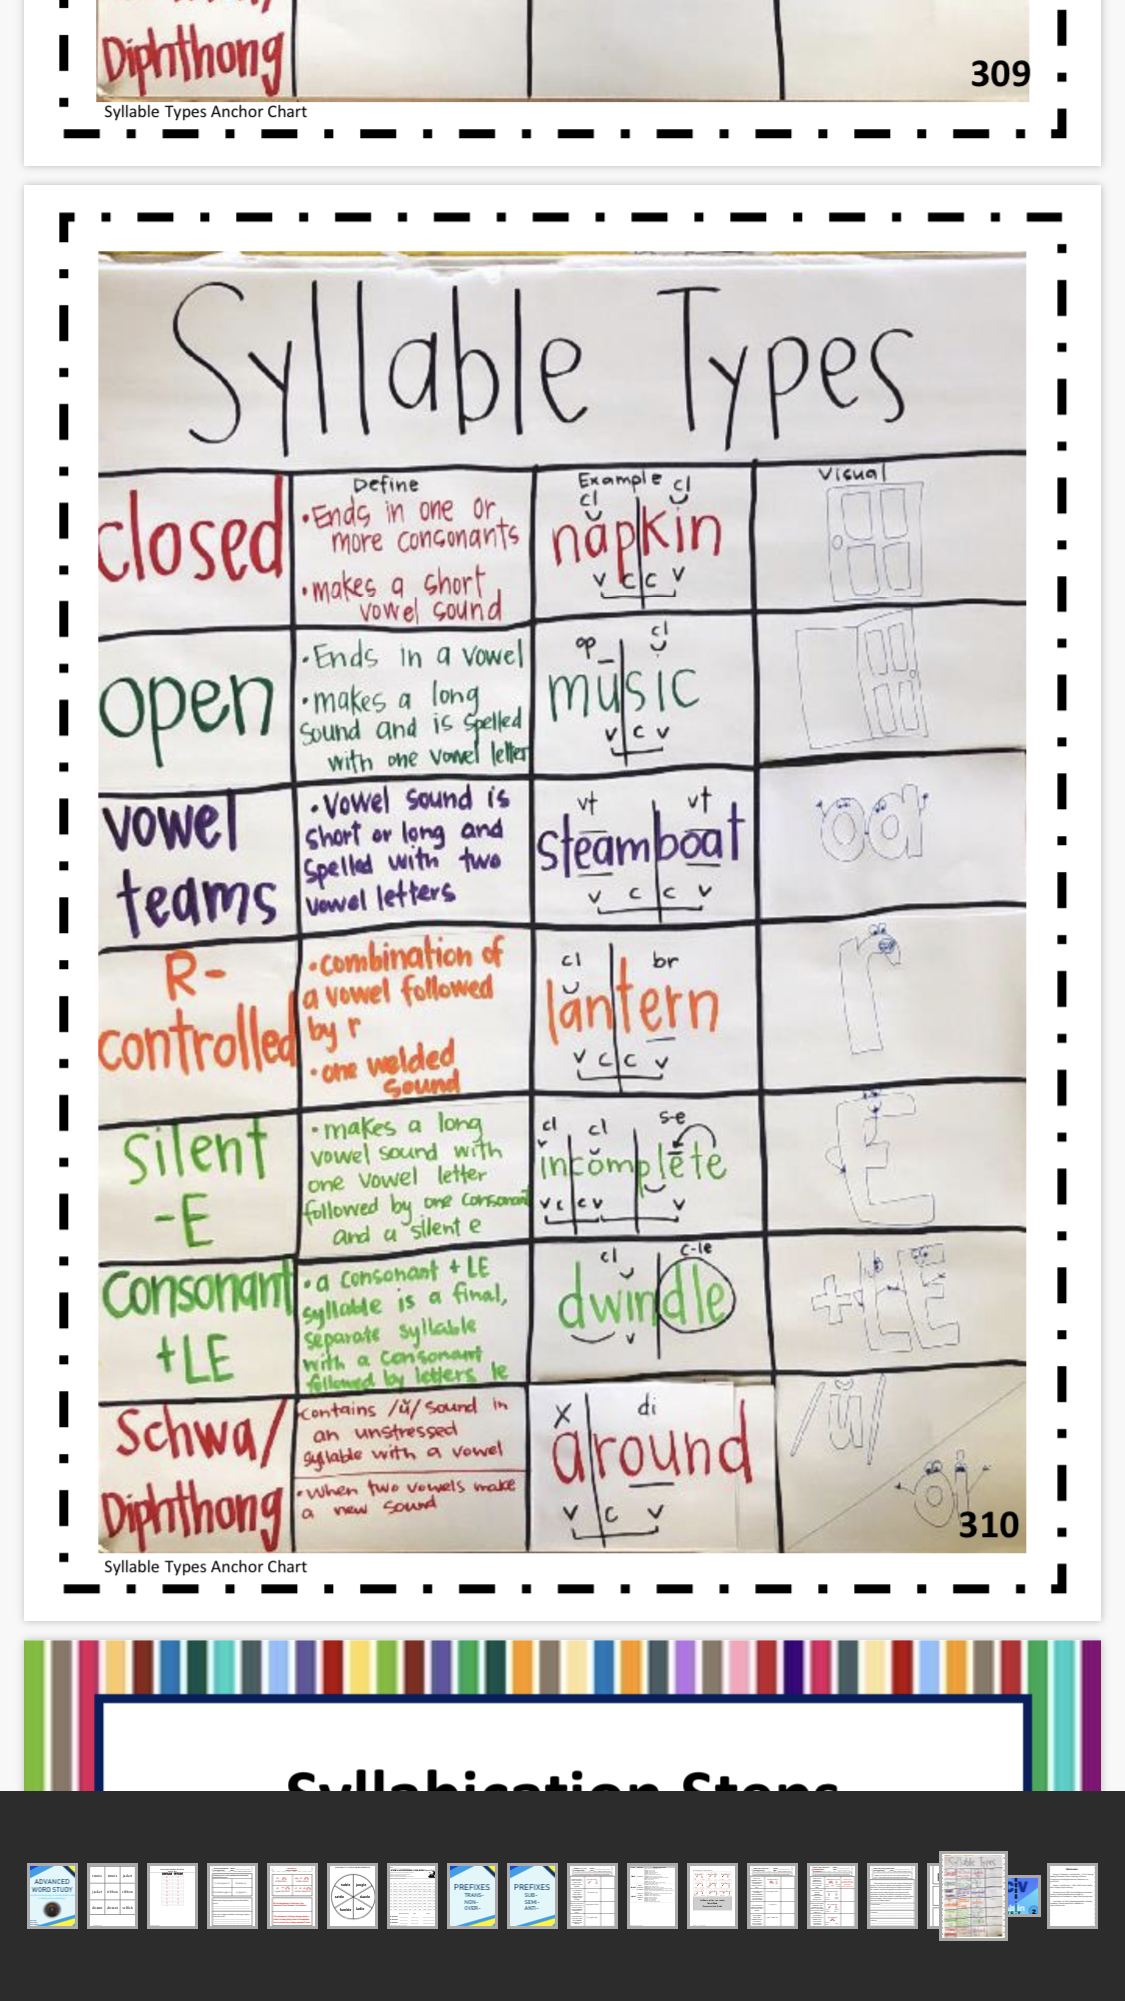 Diphthong
309
Syllable Types Anchor Chart
Syllable Types
closed
Define
•Ends in one or
more consonants
•makes a short
vowel sound
Example
cl cl
napkin
v c c v
Visual
open
•Ends in a vowel
•makes a long
sound and is spelled
with one vowel letter
op cl
music
v c v
vowel
teams
•Vowel sound is
short or long and
spelled with two
vowel letters
vt vt
steamboat
v c c v
oa
R-
controlled
•combination of
a vowel followed
by r
•one welded
sound
cl br
lantern
v c c v
r
Silent
-E
•makes a long
vowel sound with
one vowel letter
followed by one consonant
and a silent e
cl cl s-e
incomplēte
vc cv v
E
Consonant
+LE
•a consonant +LE
syllable is a final,
separate syllable
with a consonant
followed by letters le
cl c-le
dwindle
v
+LE
Schwa/
Diphthong
•contains /ŭ/ sound in
an unstressed
syllable with a vowel
•when two vowels make
a new sound
X di
around
v c v
/ŭ/
oi
310
Syllable Types Anchor Chart
Syllabication Steps
ADVANCED
WORD STUDY
PREFIXES
TRANS-
NON-
OVER-
PREFIXES
SUB-
SEMI-
ANTI-
Syllable Types